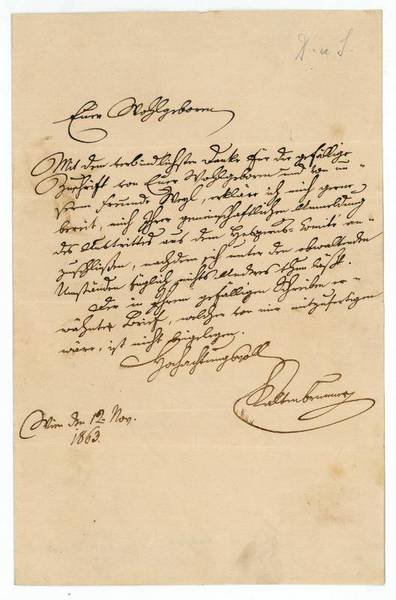 D. u. S.
Euer Wohlgeboren
Mit dem verbindlichsten Danke für die gefällige
Zuschrift von Euer Wohlgeboren und von un-
serm Freunde Vogl, erkläre ich mich gerne
bereit, mich Ihrer gemeinschaftlichen Anmeldung
des Austrittes aus dem Comité an-
zuschließen, nachdem sich unter den obwaltenden
Umständen füglich nichts Anderes thun läßt.
Der in Ihrem gefälligen Schreiben er-
wähnte Brief, welcher von mir mitzufertigen
wäre, ist nicht beigelegen.
Hochachtungsvoll
Kaltenbrunner
Wien den 12. Nov.
1863.